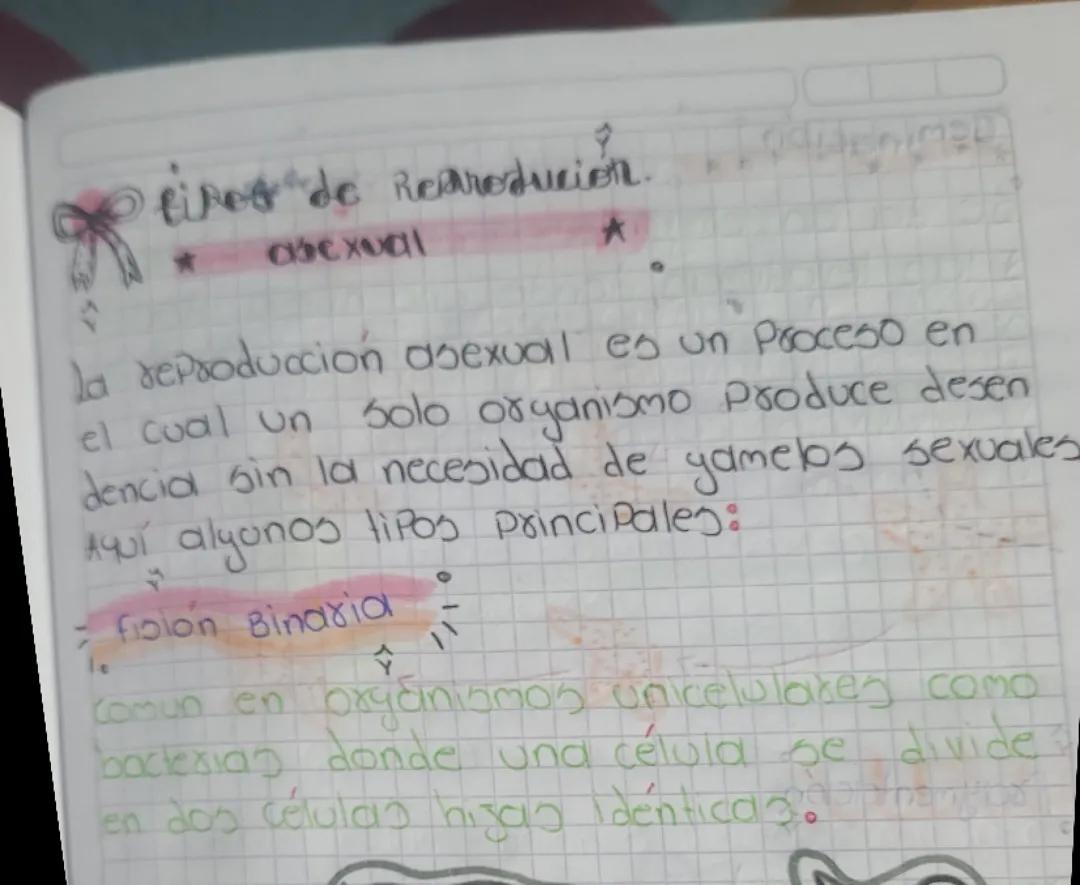 tipos de Reproducción.
asexual
la reproducción asexual es un Proceso en
el cual un solo organismo Produce desen
dencia sin la necesidad de gametos sexuales
Aquí algunos tipos principales:
fisión Binaria
comun en organismos unicelulares como
bacterias donde una célula se divide
en dos células hijas idénticas.